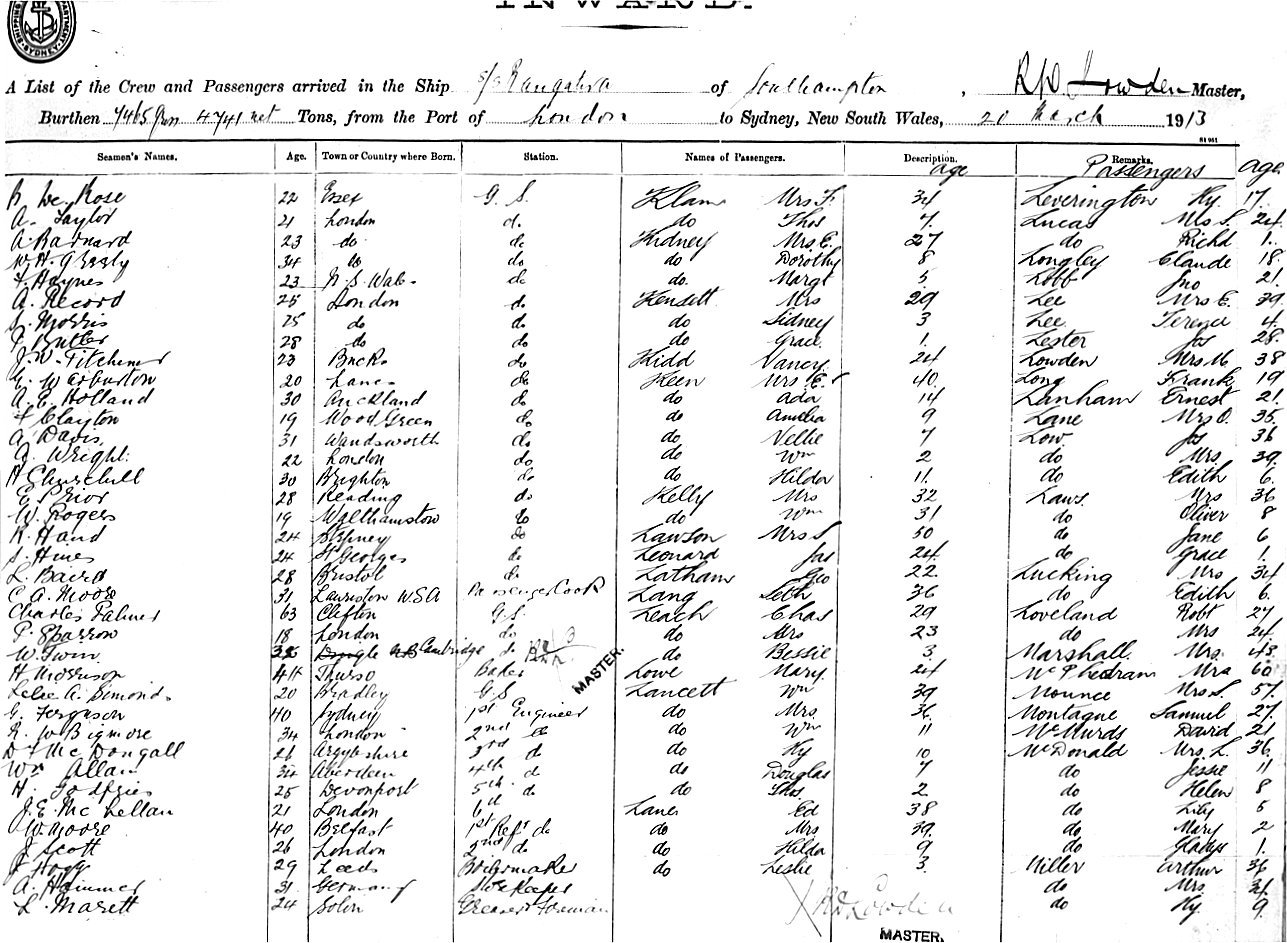 INWARD.
SHIPPING DEPARTMENT. SYDNEY
A List of the Crew and Passengers arrived in the Ship s/s Rangatira of Southampton, R.D. Lowden Master,
Burthen 7465 4741 net Tons, from the Port of London to Sydney, New South Wales, 20 March 1913
S1051
Seamen's Names. Age. Town or Country where Born. Station. Names of Passengers. Description. age Remarks. Passengers age
De Rose 22 Essex G. S. Klam Mrs F. 34 Leverington Hy. 17.
A. Taylor 21 London do Thos 7. Lucas Mrs S. 24
A Barnard 23 do do Kidney Mrs E. 27 do Richd 1.
W. H. 34 do do do Dorothy 8 Longley Claude 18.
Haynes 23 N. S. Wales do do Margt 5 Lobb Jno 21.
A. Record 25 London do Kensett Mrs 29 Lee Mrs E. 39
S. Morris 25 do do do Sidney 3 Lee Terence 4.
Butler 28 do do do Grace 1. Lester Js 28.
J. W. Titchener 23 Bucks do Kidd Nancy 24 Lowden Mrs M. 38
G. Warburton 20 Lancs do Keen Mrs E. 40. Long Frank 19
A. E. Holland 30 Auckland do do Ada 14 Lanham Ernest 21.
Clayton 19 Wood Green do do Amelia 9 Lane Mrs O. 35.
A. Davis 31 Wandsworth do do Nellie 7 Low Js 36
Wright. 22 London do do Wm 2 do Mrs 39.
Churchill 30 Brighton do do Hilda 11. do Edith 6.
E. Prior 28 Reading do Kelly Mrs 32 Laws Mrs 36
W. Rogers 19 Walthamstow do do Wm 31 do Oliver 8
R. Hand 24 Stepney do Lawson Mrs S 50 do Jane 6
S. Hines 24 St Georges do Leonard Jas 24. do Grace 1.
L. Baird 28 Bristol do Latham Geo 22. Lucking Mrs 34
C. A. Moore 31 Lawiston U.S.A Passenger Cook Lang Seth 36 do Edith 6.
Charles Palmer 63 Clifton G.S. Leach Chas 29 Loveland Robt 27
P. Sparrow 18 London do do Mrs 23 do Mrs 24.
W. Twin Cambridge do MASTER. do Bessie 3. Marshall. Mrs. 43.
H Morrison 44 Thurso Baker Lowe Mary. 24 McPhedram Mrs 60
Leslie A. Simonds 20 Bradley G.S Lancett Wm 39 Mounce Mrs S. 57.
G. Ferguson 40 Sydney 1st Engineer do Mrs. 36. Montague Samuel 27.
R. W Bigmore 34 London 2nd do do Wm 11 McMurdo David 21
D. McDougall 26 Argyleshire 3rd do do Hy 10 McDonald Mrs. L. 36.
Wm Allan 34 Aberdeen 4th do do Douglas 7 do Jessie 11
H. Godfries 25 Devonport 5th do do Thos 2 do Helen 8
J. E. McLellan 21 London 6th Lane Ed 38 do Lily 5
W. Moore 40 Belfast 1st Refr do do Mrs 39. do Mary 2
J Scott 26 London 2nd do do Hilda 9 do Gladys 1.
Hogg 29 Leeds Boilermaker do Leslie 3. Miller Arthur 36
A. Hammer 31. Germany Storekeeper do Mrs 34.
L. Marett 24 Greaser & Foreman R.D. Lowden do Hy. 9.
MASTER.